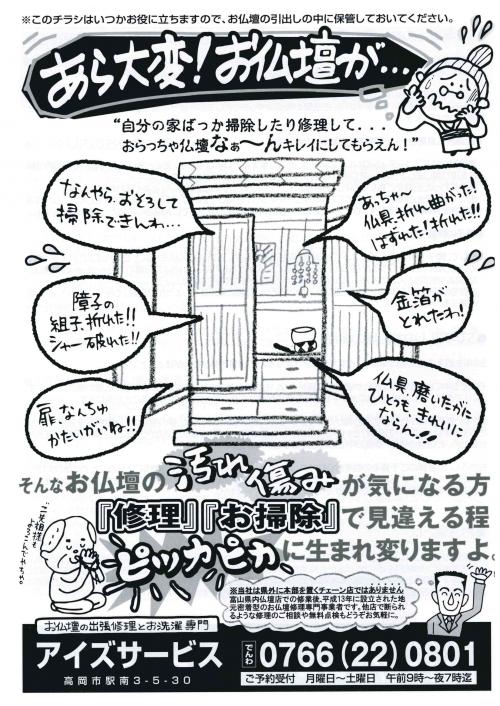 ※このチラシはいつかお役に立ちますので、お仏壇の引出しの中に保管しておいてください。
あら大変!お仏壇が...
“自分の家ばっか掃除したり修理して...
おらっちゃ仏壇なぁ〜んキレイにしてもらえん!”
なんやら、おそろして
掃除できんわ...
あっちゃ〜
仏具、折れ曲がった!
はずれた!折れた!!
障子の
組子、折れた!!
シャー破れた!!
金箔が
とれたわ!
扉、なんちゅ
かたいがいね!!
仏具、磨いたがに
ひとつも、きれいに
ならん!!
そんなお仏壇の汚れ傷みが気になる方
『修理』『お掃除』で見違える程
ピッカピカに生まれ変りますよ。
ご先祖様も
よろこんでれちゃ。
※当社は県外に本部を置くチェーン店ではありません
富山県内仏壇店での修業後、平成13年に設立された地
元密着型のお仏壇修理専門事業者です。他店で断られ
るような修理のご相談や無料点検もどうぞお気軽に。
お仏壇の出張修理とお洗濯専門
アイズサービス
高岡市駅南3-5-30
でんわ 0766(22)0801
ご予約受付 月曜日〜土曜日 午前9時〜夜7時迄